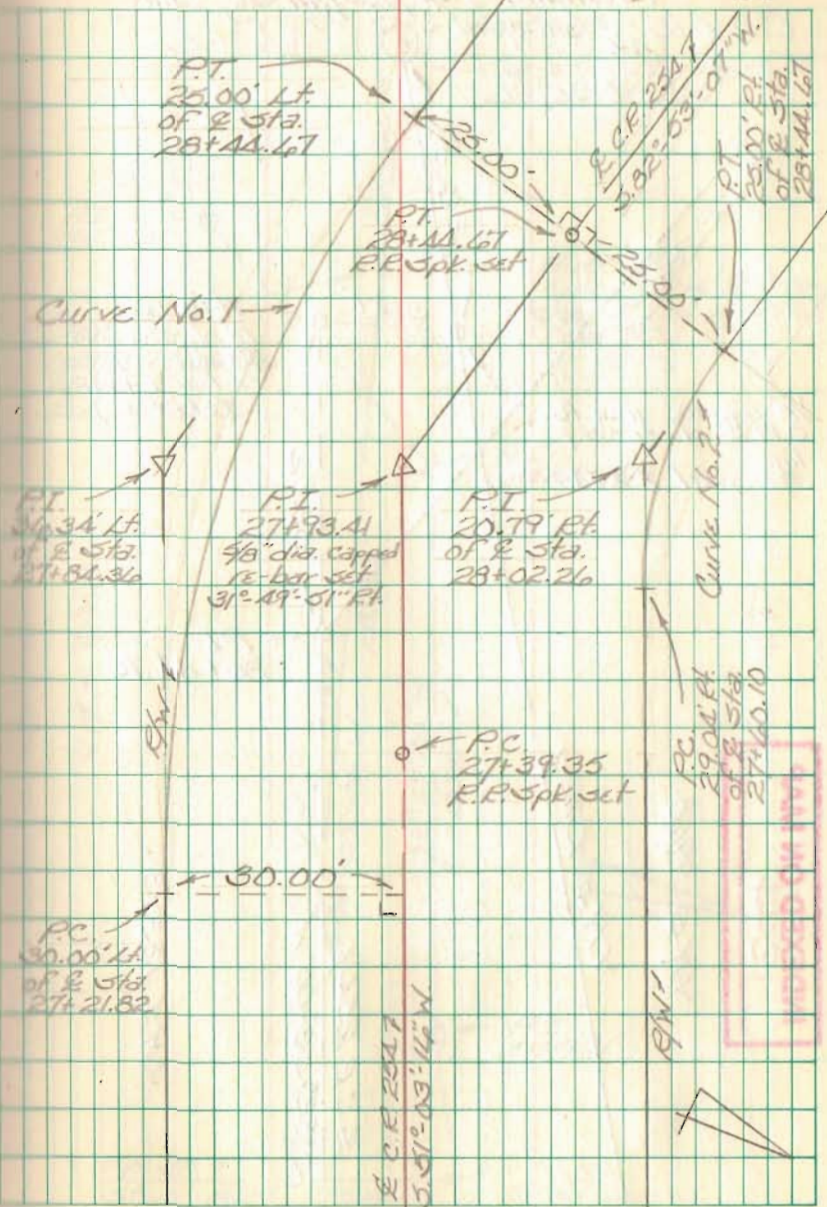 P.T.
25.00' Lt.
of ℄ Sta.
28+44.67
25.00'
℄ C.R. 2547
S.82°-53'-07"W.
P.T.
25.00' Rt.
of ℄ Sta.
28+44.67
P.T.
28+44.67
R.R. Spk. set
25.00'
Curve No.1
P.I.
36.34' Lt.
of ℄ Sta.
27+84.36
P.I.
27+93.41
5/8" dia. capped
re-bar set
31°-49'-51" Rt.
P.I.
20.79' Rt.
of ℄ Sta.
28+02.26
Curve No.2
R/W
P.C.
27+39.35
R.R. Spk. set
P.C.
29.04' Rt.
of ℄ Sta.
27+60.10
30.00'
P.C.
30.00' Lt.
of ℄ Sta.
27+21.82
℄ C.R. 2547
S.51°-03'-16"W.
R/W
INDEXED ON